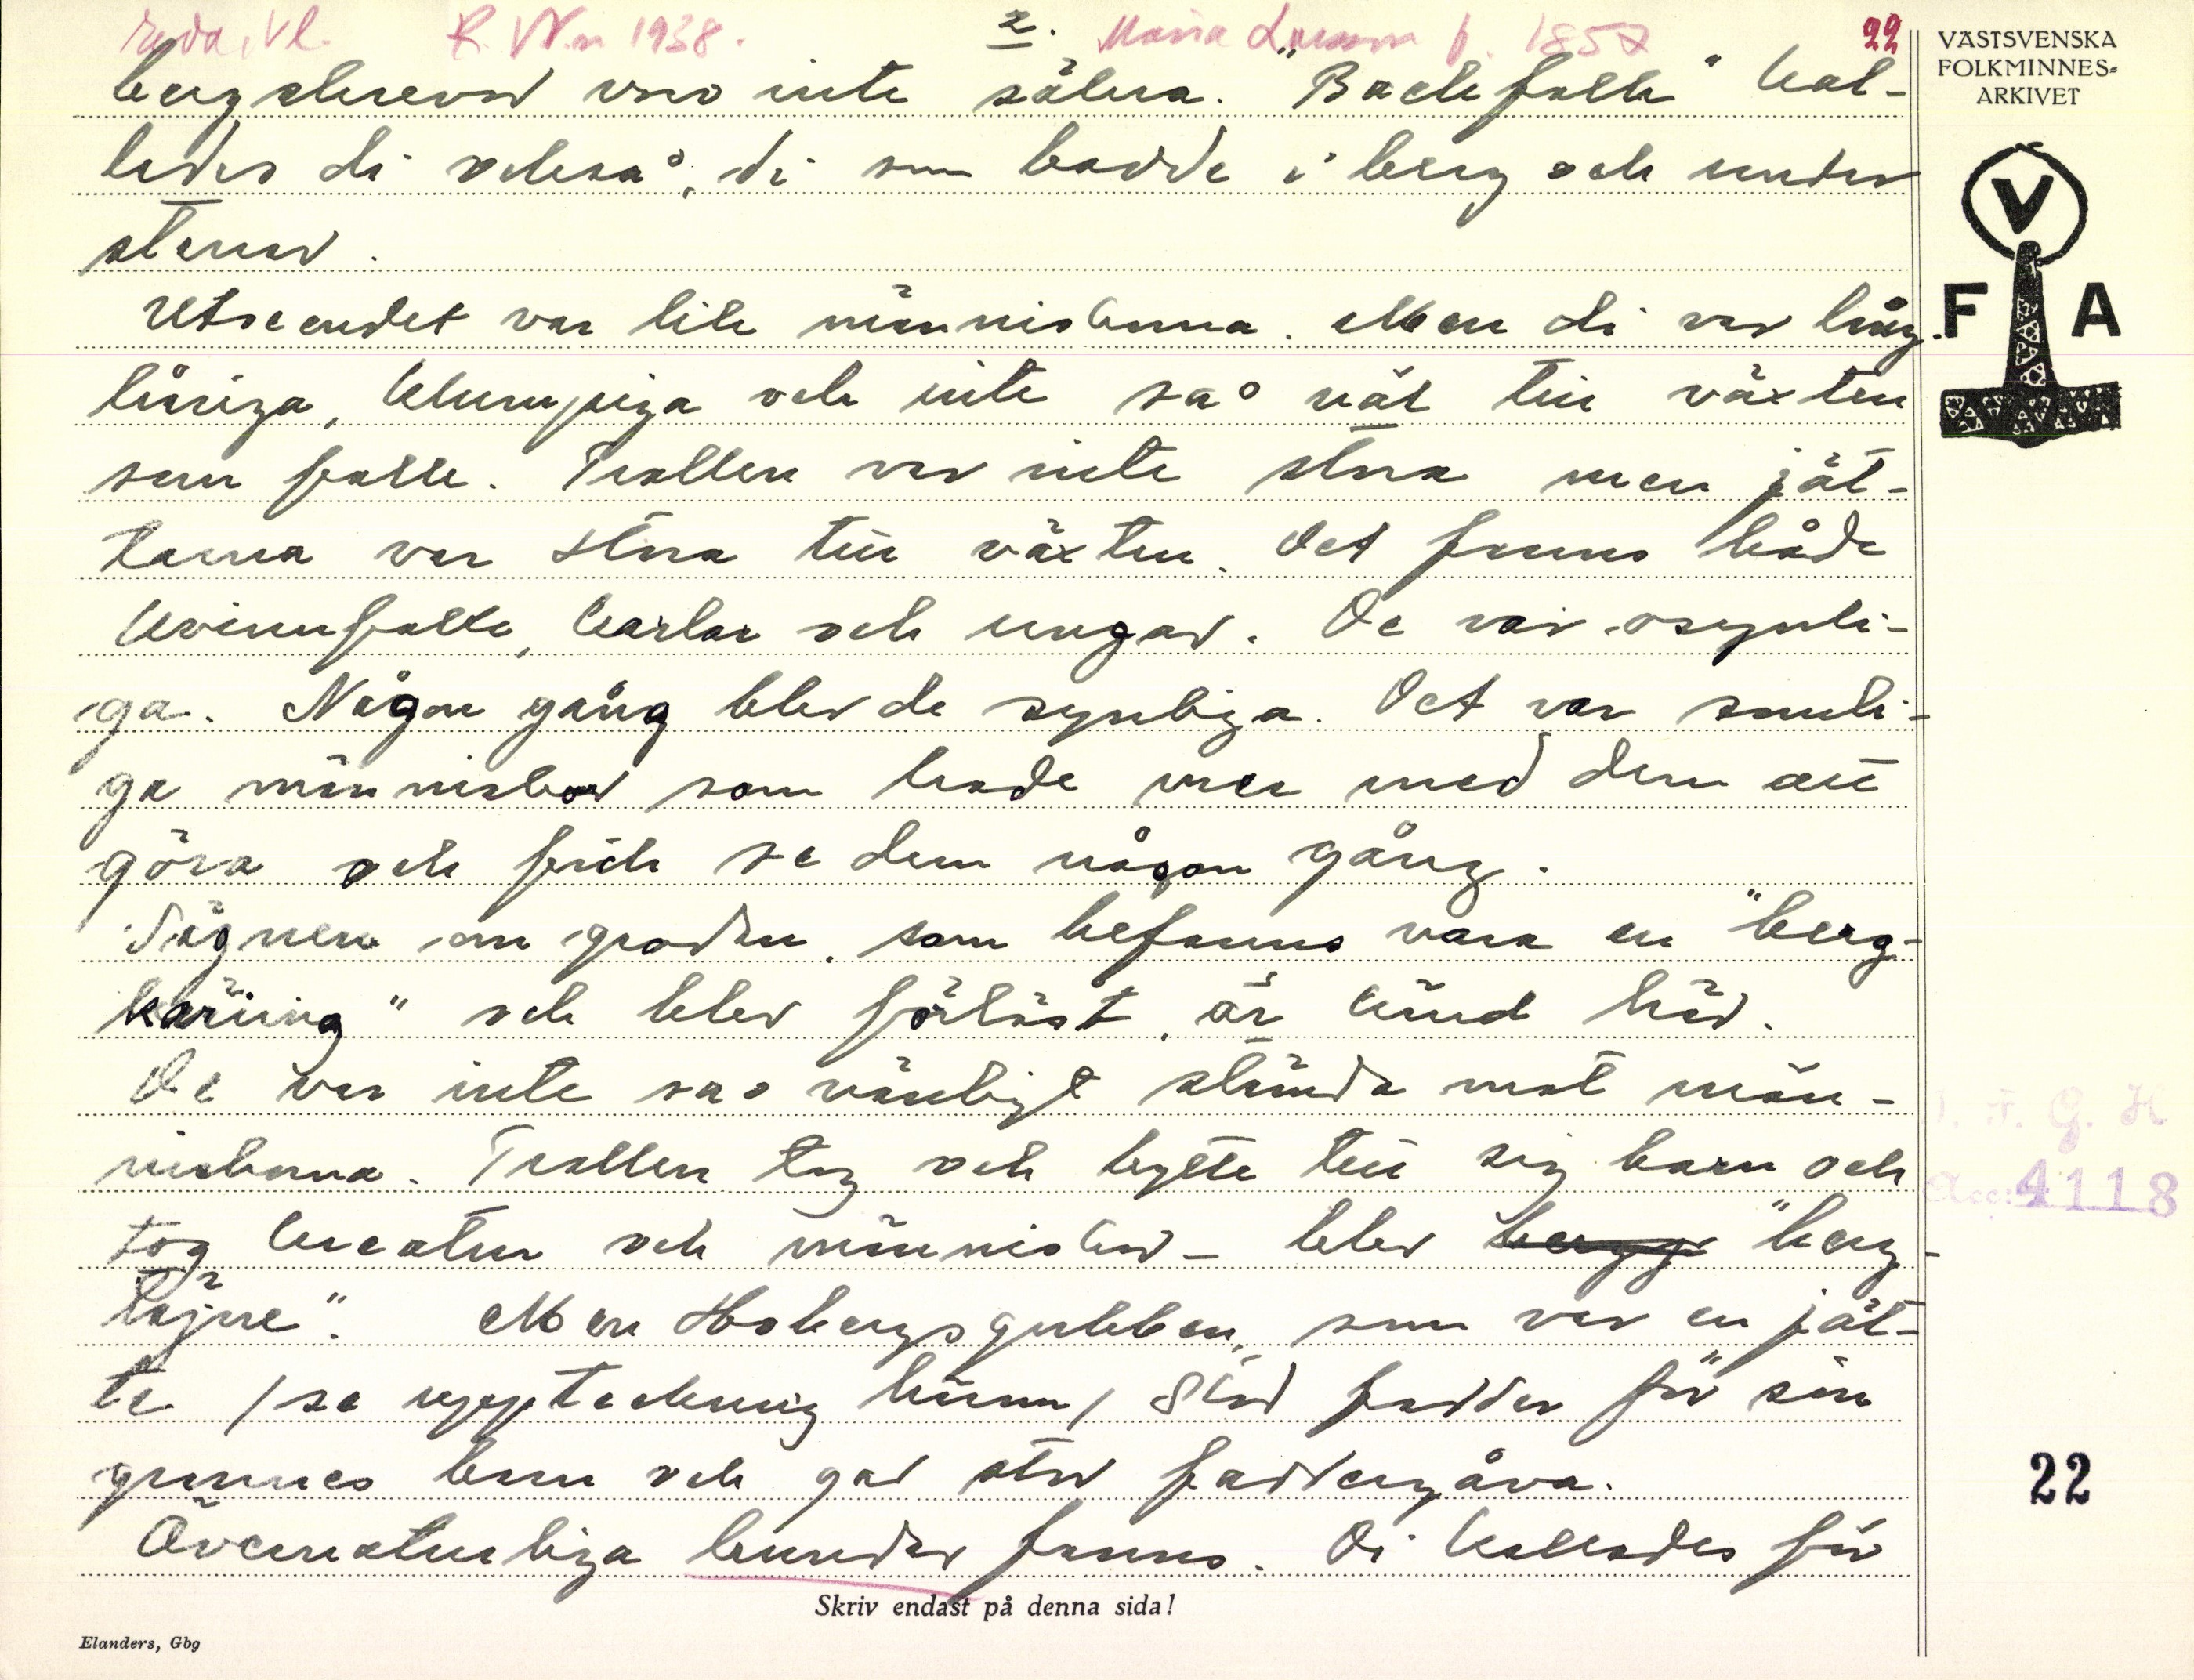 Reda, Vl. R. VN.n 1938. 2. Maria Larsson f. 1857 22
VÄSTSVENSKA
FOLKMINNES-
ARKIVET
V
F A
bergskrevor vro inte såna. "Backefolk" kal-
lades di också, di som bodde i berg och under
stenar.
Utseendet var lik människorna. Men di var lång-
håriga, klumpiga och inte så nät till växten
som folk. Trollen var inte stora men jät-
tarna var stora till växten. Det fanns både
kvinnfolk, karlar och ungar. De var osynli-
ga. Någon gång blev de synliga. Det var somli-
ga människor som hade mer med dem att
göra och fick se dem någon gång.
Sägnen om grodan, som befanns vara en "berg-
käring" och blev förlöst, är känd här.
De var inte så vänligt stämda mot män-
niskorna. Trollen tog och bytte till sig barn och
tog kreatur och människor - blev "berg-
tajne". Men Hobergsgubben, som var en jät-
te /se uppteckning härom/ stod fadder för sin
grannes barn och gav stor faddergåva.
Övernaturliga hundar fanns. Di kallades för
I. F. G. H
Acc: 4118
22
Skriv endast på denna sida!
Elanders, Gbg